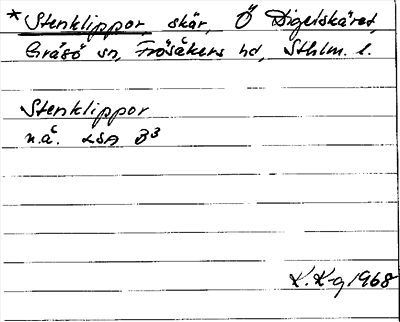 *Stenklippor, skär, Ö Digelskäret,
Gräsö sn, Frösåkers hd, Sthlm. l.
Stenklippor
n.ä. LSA B³
K. K-g 1968